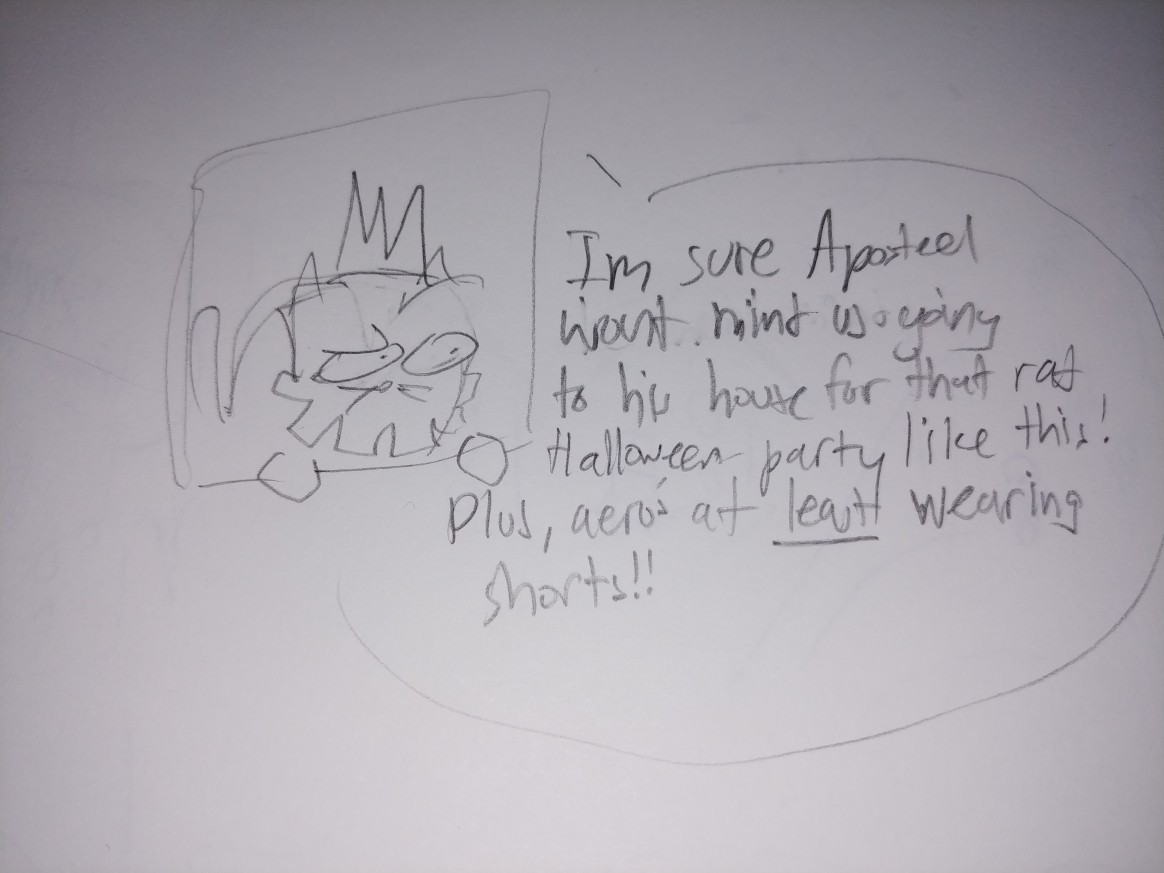 Im sure Aposteel
wont mint us going
to his house for that rat
Halloween party like this!
Plus, aero's at least wearing
shorts!!